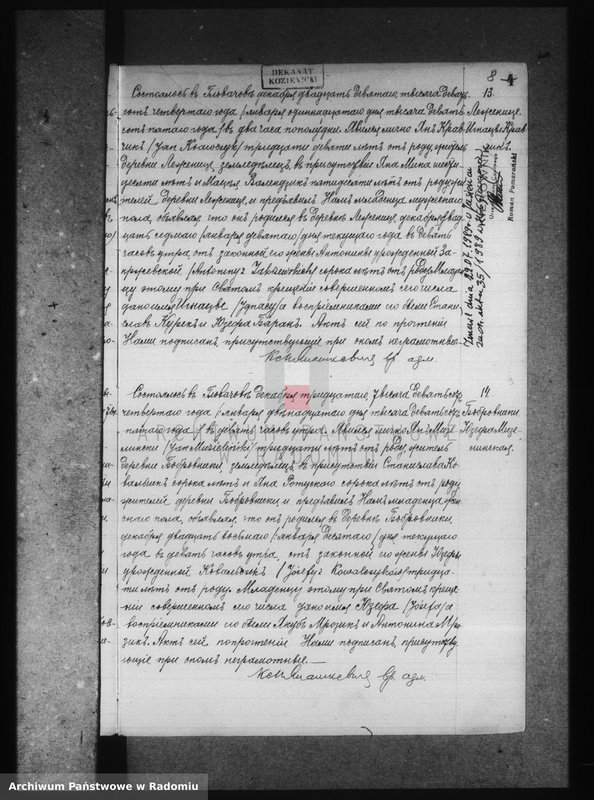 DEKANAT
KOZIENICKI
8 4
Состоялось въ Гловачовѣ декабря двадцать девятаго, тысяча девять
сотъ четвертаго года /января одиннадцатаго дня тысяча девять
сотъ пятаго года/ въ два часа пополудни. Явился лично Янъ Крав
чикъ /Jan Krawczyk/ тридцати девяти лѣтъ отъ роду,
деревни Леженице, земледѣлецъ, въ присутствіи Яна Мика
десяти лѣтъ и пятидесяти лѣтъ отъ роду
телей деревни Леженице, и предъявилъ Намъ младенца мужескаго
пола, объявляя, что онъ родился въ деревнѣ Леженице, декабря двад
цать седьмаго /января девятаго/ дня текущаго года въ девять
часовъ утра, отъ законной его жены Антонины урожденной За
/Antoniny z сорока лѣтъ отъ роду. Младен
цу этому при Святомъ крещеніи совершенномъ сего числа
дано имя Игнацы /Ignacy/ а воспріемниками его были Стани
славъ Курекъ и Юзефа Баранъ. Актъ сей по прочтеніи
Нами подписанъ, присутствующіе при ономъ неграмотные.
13.
Леженице
Игнацы Крав
чикъ.
Zmarł dnia 22.07.1989r w Radomiu
akt 35/1989
Roman Pomarański
Состоялось въ Гловачовѣ декабря тридцатаго, тысяча девятьсотъ
четвертаго года /января двѣнадцатаго дня тысяча девятьсотъ
пятаго года/ въ девять часовъ утра. Явился лично Янъ
/Jan тридцати лѣтъ отъ роду, житель
деревни Бобровники, земледѣлецъ въ присутствіи Станислава Ко
вальчикъ сорока лѣтъ и Яна сорока лѣтъ отъ роду
жителей деревни Бобровники, и предъявилъ Намъ младенца
скаго пола, объявляя, что онъ родился въ деревнѣ Бобровники,
декабря двадцать восьмаго /января десятаго/ дня текущаго
года въ девять часовъ утра, отъ законной его жены Юзефы
урожденной Ковальчикъ /Józefy z Kowalczyków/ тридца
ти лѣтъ отъ роду. Младенцу этому при Святомъ креще
ніи совершенномъ сего числа дано имя Юзефа /Józefa/ а
воспріемниками его были Якубъ Мрозикъ и Антонина Мро
зикъ. Актъ сей по прочтеніи Нами подписанъ, присутству
ющіе при ономъ неграмотные.
14.
Бобровники
Юзефа
Archiwum Państwowe w Radomiu